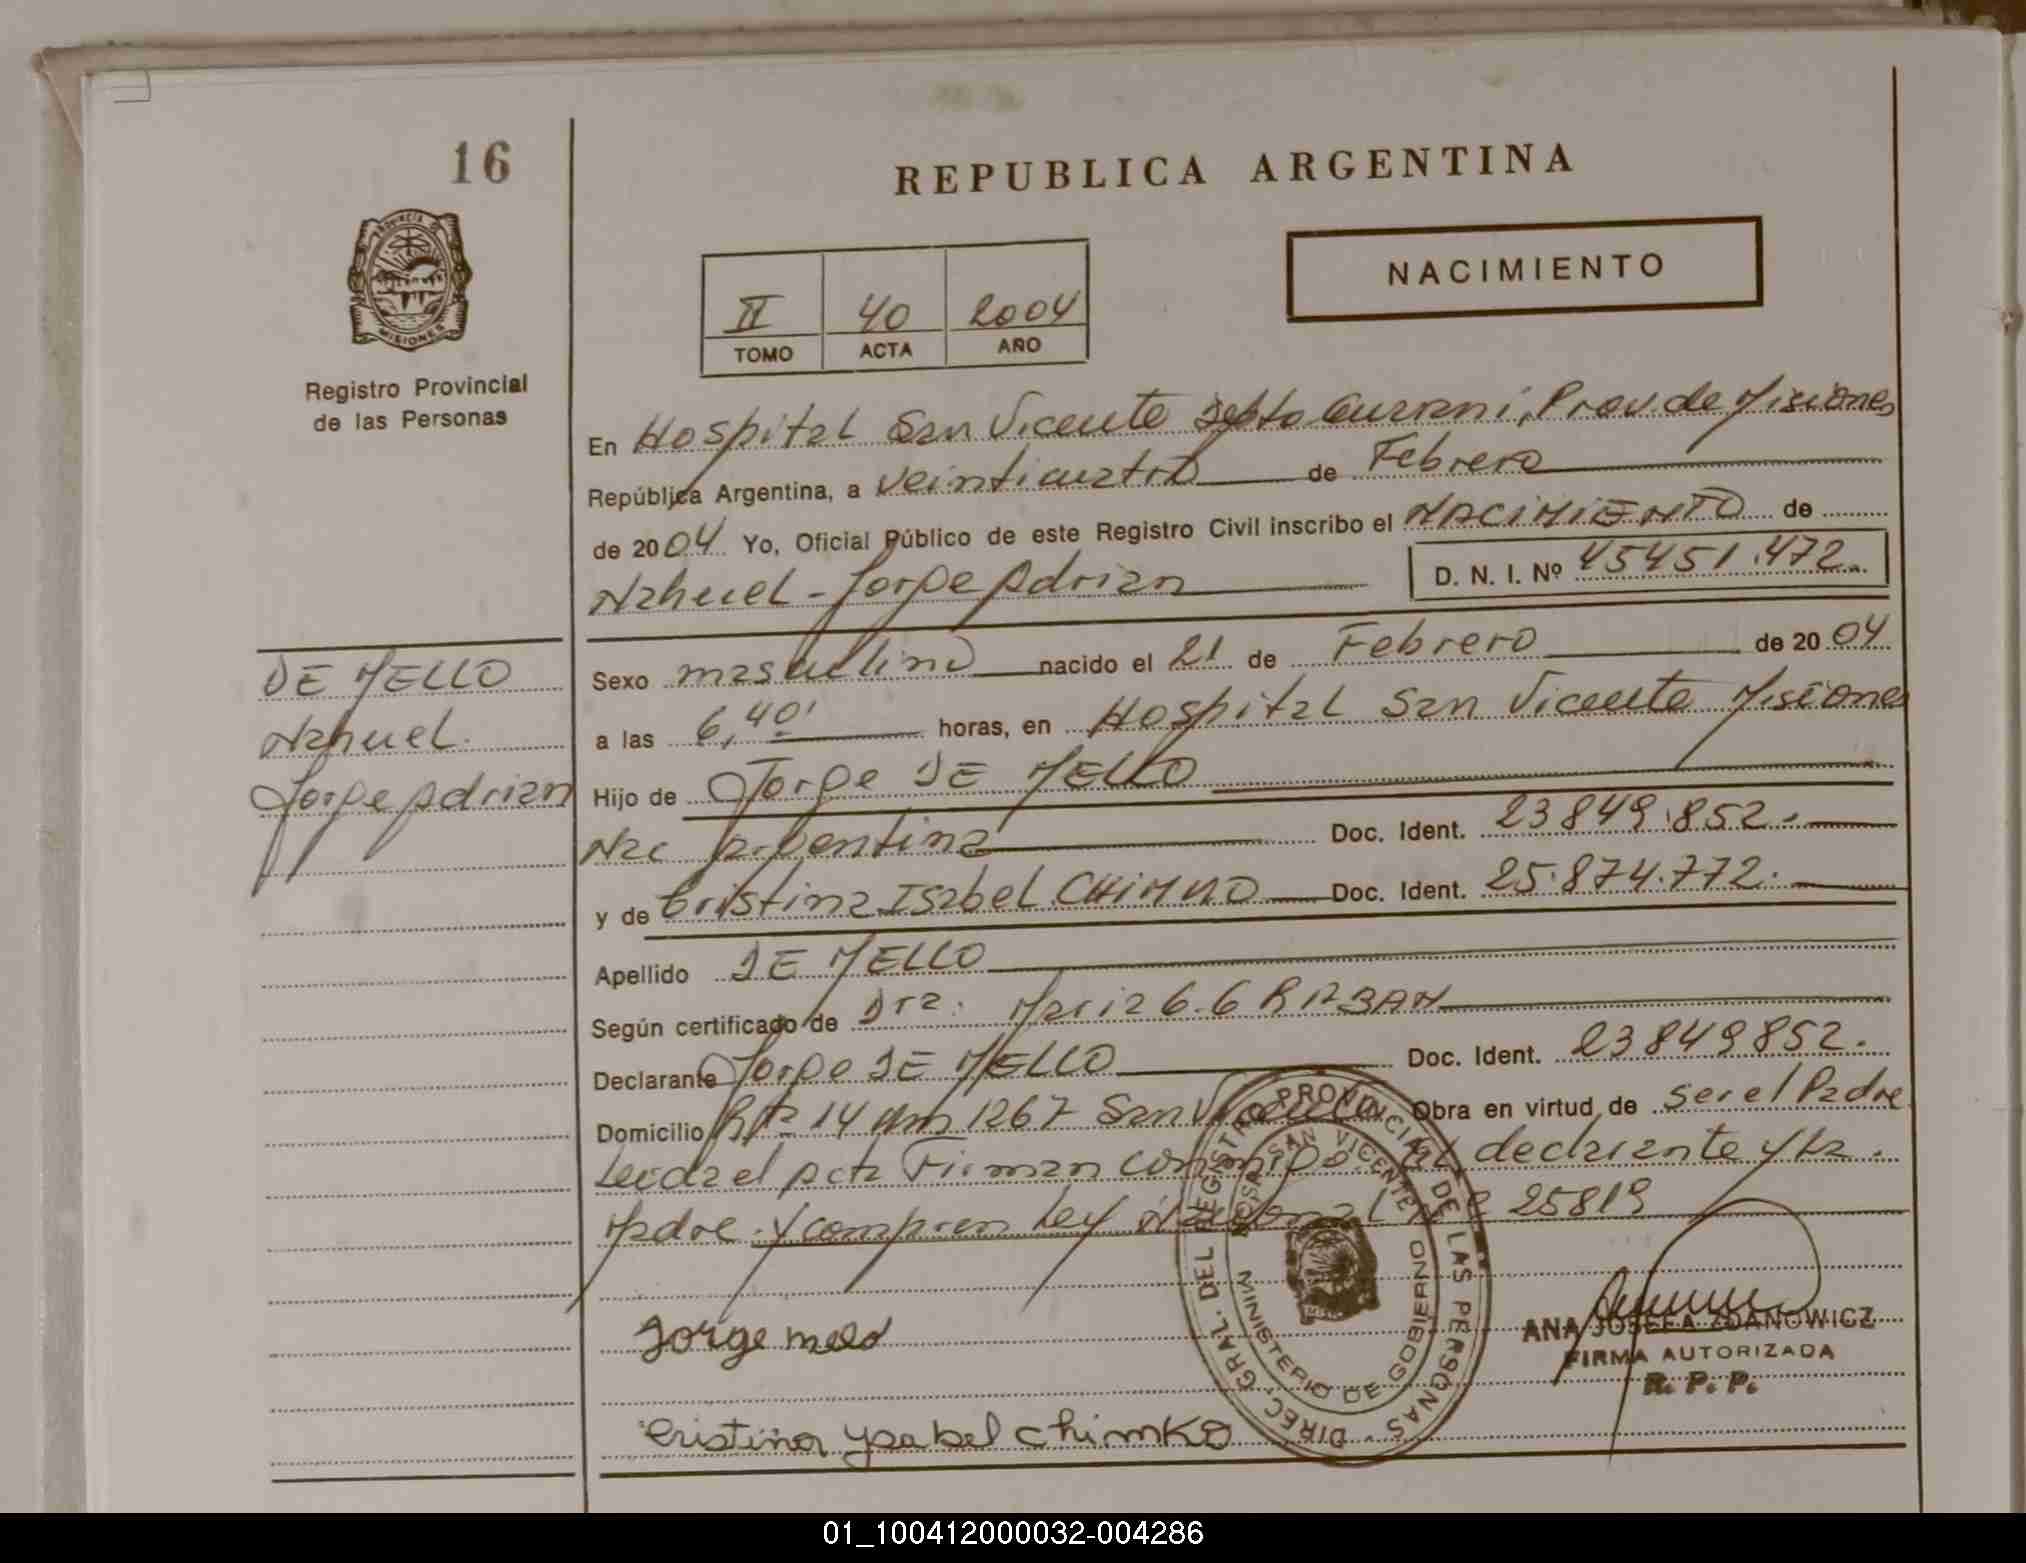 16
REPUBLICA ARGENTINA
PROVINCIA DE
MISIONES
Registro Provincial
de las Personas
II 40 2004
TOMO ACTA AÑO
NACIMIENTO
En Hospital San Vicente Depto Guarani, Prov de Misiones
República Argentina, a veinticuatro de Febrero
de 2004 Yo, Oficial Público de este Registro Civil inscribo el NACIMIENTO de
Nahuel - Jorge Adrian D. N. I. Nº 45451.472.
DE MELLO
Nahuel
Jorge Adrian
Sexo masculino nacido el 21 de Febrero de 2004
a las 6,40' horas, en Hospital San Vicente Misiones
Hijo de Jorge DE MELLO
Nac Argentina Doc. Ident. 23849.852.
y de Cristina Isabel Doc. Ident. 25.874.772.
Apellido DE MELLO
Según certificado de Dra. Maria
Declarante Jorge DE MELLO Doc. Ident. 23849852.
Domicilio Rta 14 Km 1267 San Vicente Obra en virtud de ser el Padre
Leida el Acta Firman conmigo El declarante y La
Madre y Ley Nacional Nº 25819
Jorge melo
Cristina ysabel chimko
DIREC. GRAL. DEL REGISTRO PROVINCIAL DE LAS PERSONAS
SAN VICENTE
MINISTERIO DE GOBIERNO
ANA JOSEFA ZDANOWICZ
FIRMA AUTORIZADA
R. P. P.
01_100412000032-004286